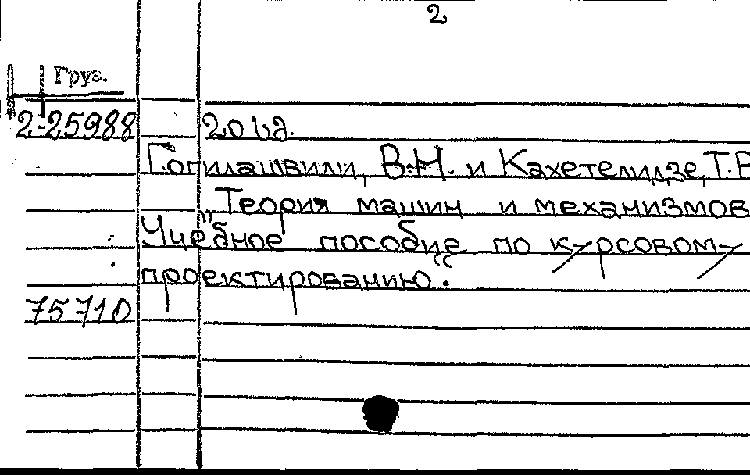 2
Груз.
2-25988
Гогилашвили, В.Н. и Кахетелидзе, Т.В
"Теория машин и механизмов
Учебное пособие по курсовому
проектированию".
75710